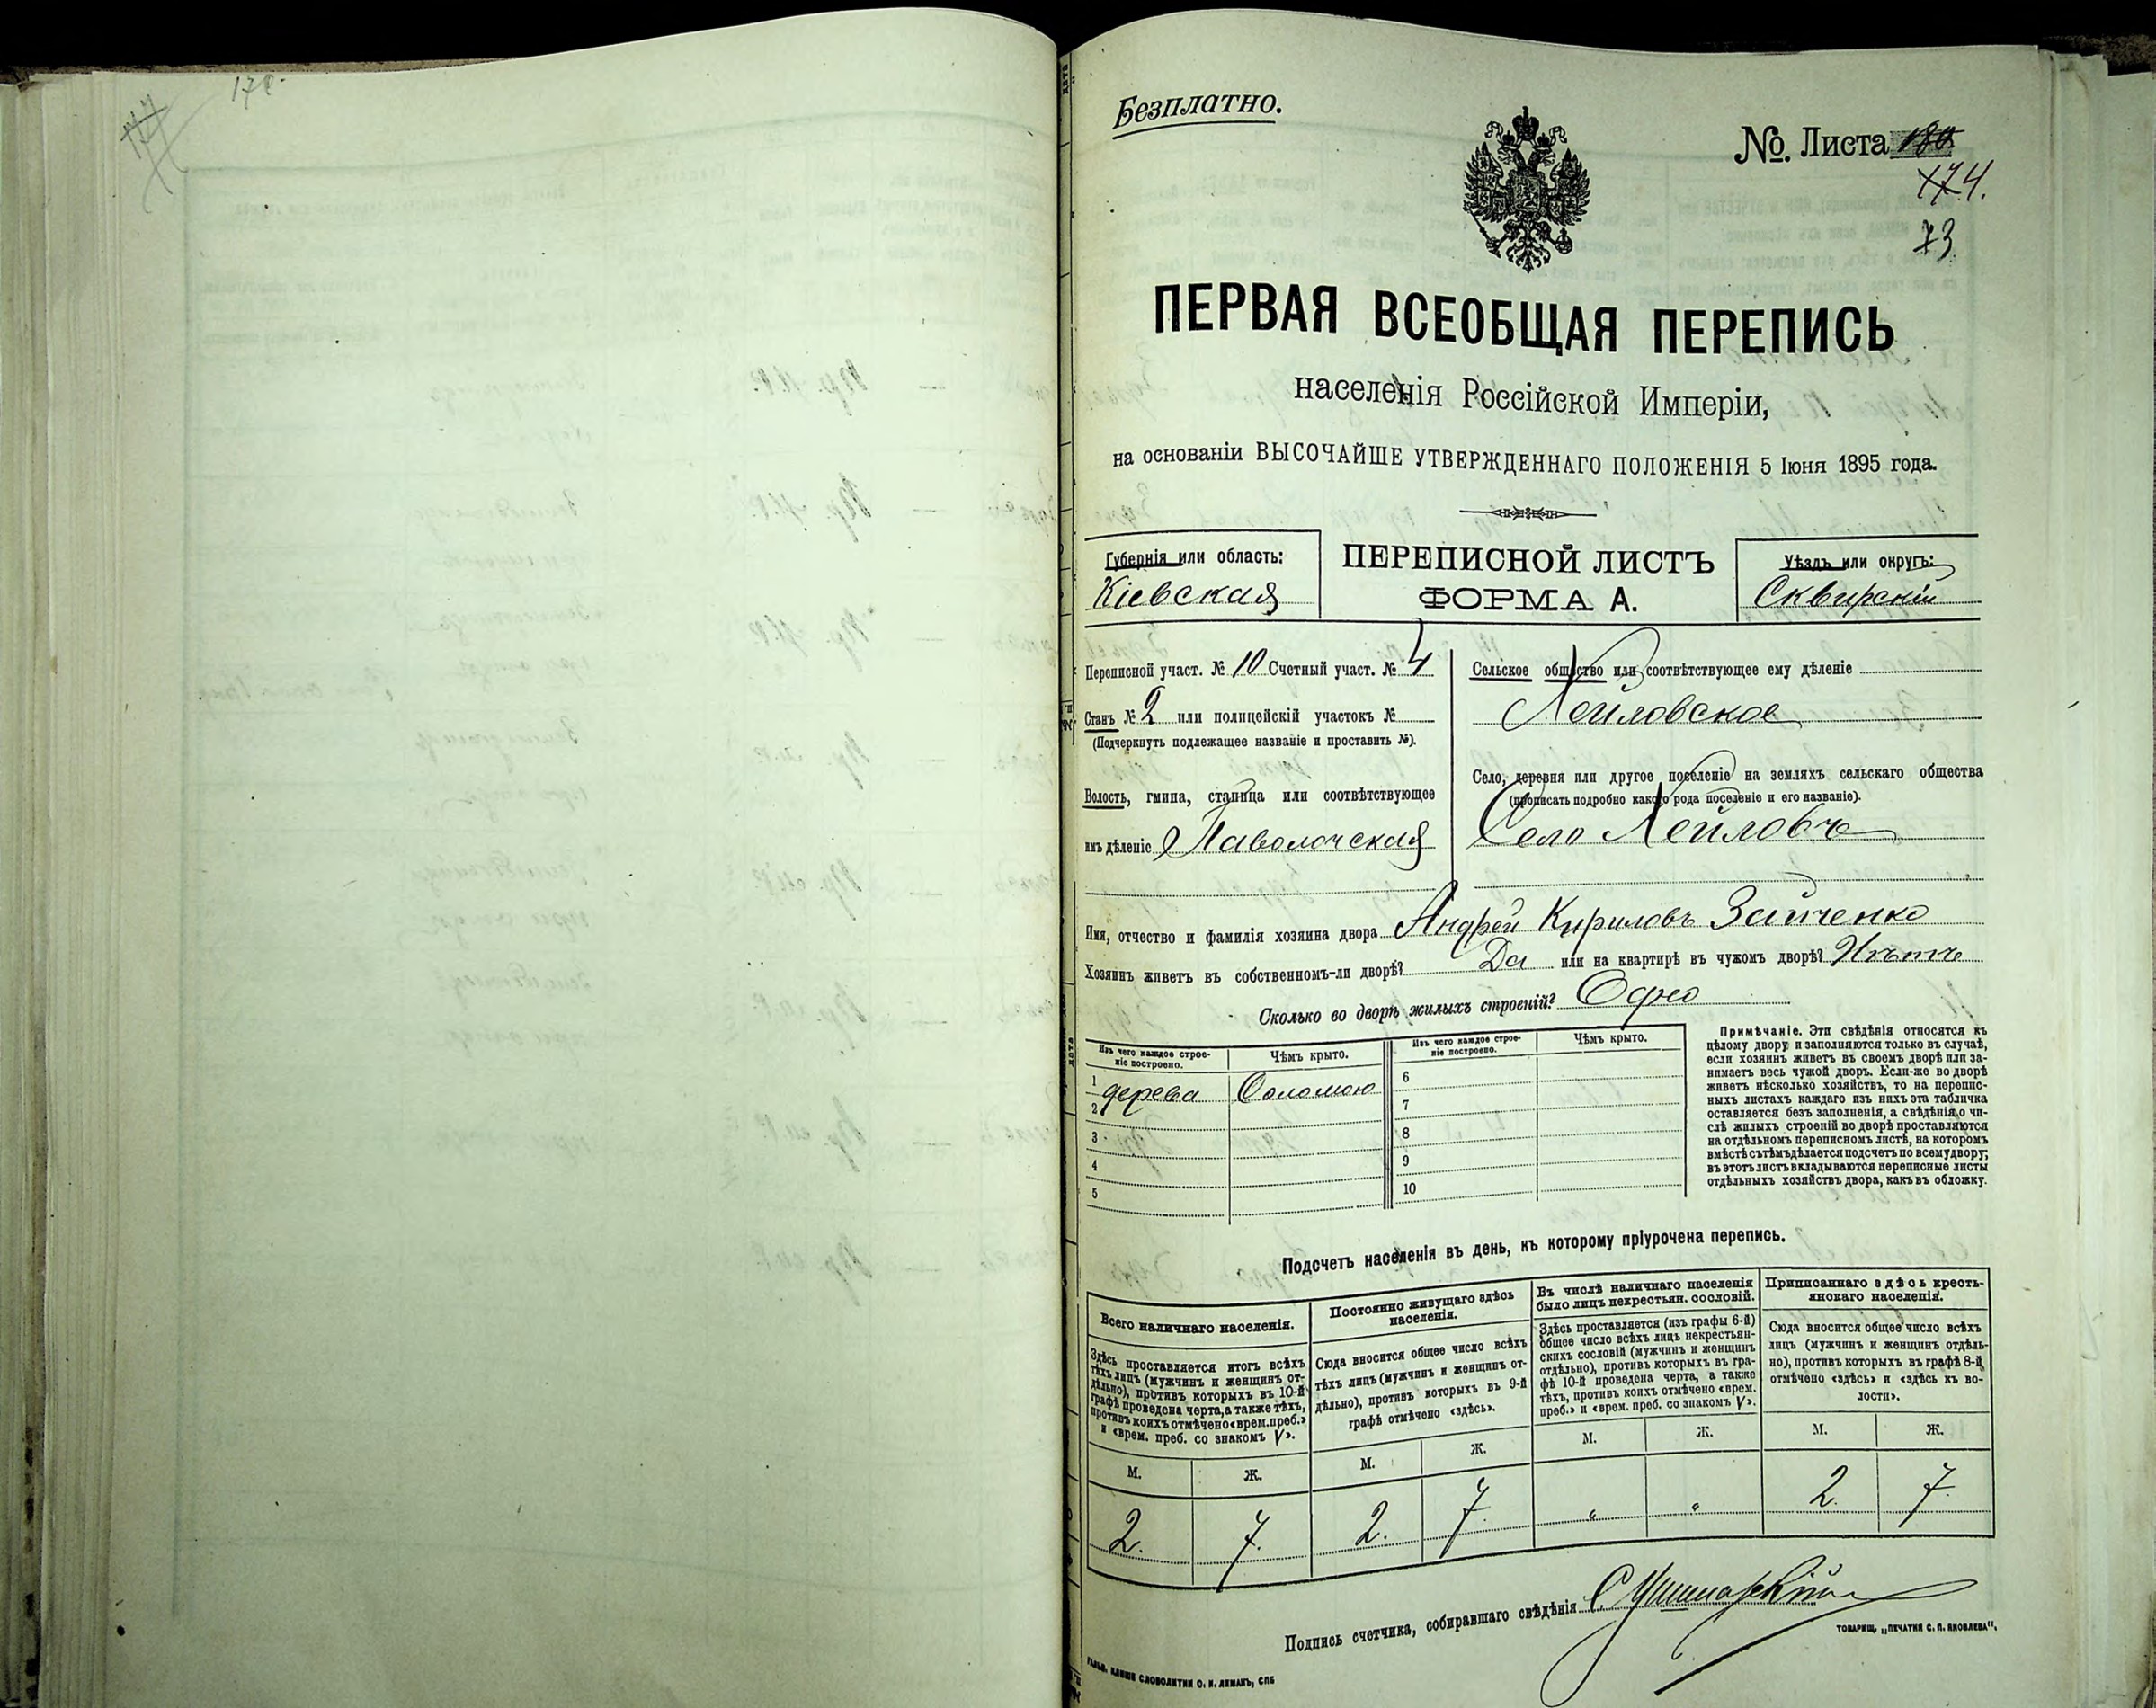 178.
Безплатно.
№. Листа 180
174.
73
ПЕРВАЯ ВСЕОБЩАЯ ПЕРЕПИСЬ
населенія Россійской Имперіи,
на основаніи ВЫСОЧАЙШЕ УТВЕРЖДЕННАГО ПОЛОЖЕНІЯ 5 Іюня 1895 года.
Губернія или область:
Кіевская
ПЕРЕПИСНОЙ ЛИСТЪ
ФОРМА А.
Уѣздъ или округъ:
Сквирскій
Переписной участ. № 10 Счетный участ. № 4
Станъ № 2 или полицейскій участокъ №
(Подчеркнуть подлежащее названіе и проставить №).
Волость, гмина, станица или соотвѣтствующее
имъ дѣленіе Паволочская
Сельское общество или соотвѣтствующее ему дѣленіе
Село, деревня или другое поселеніе на земляхъ сельскаго общества
(прописать подробно какого рода поселеніе и его названіе).
Село
Имя, отчество и фамилія хозяина двора Андрей Кириловъ Зайченко
Хозяинъ живетъ въ собственномъ-ли дворѣ? Да или на квартирѣ въ чужомъ дворѣ? Нѣтъ
Сколько во дворѣ жилыхъ строеній? Одно
Изъ чего каждое строе-
ніе построено.
Чѣмъ крыто.
Изъ чего каждое строе-
ніе построено.
Чѣмъ крыто.
1 дерева Соломою
2
3
4
5
6
7
8
9
10
Примѣчаніе. Эти свѣдѣнія относятся къ
цѣлому двору и заполняются только въ случаѣ,
если хозяинъ живетъ въ своемъ дворѣ или за-
нимаетъ весь чужой дворъ. Если-же во дворѣ
живетъ нѣсколько хозяйствъ, то на перепис-
ныхъ листахъ каждаго изъ нихъ эта табличка
оставляется безъ заполненія, а свѣдѣнія о чи-
слѣ жилыхъ строеній во дворѣ проставляются
на отдѣльномъ переписномъ листѣ, на которомъ
вмѣстѣ съ тѣмъ дѣлается подсчетъ по всему двору;
въ этотъ листъ вкладываются переписные листы
отдѣльныхъ хозяйствъ двора, какъ въ обложку.
Подсчетъ населенія въ день, къ которому пріурочена перепись.
Всего наличнаго населенія.
Здѣсь проставляется итогъ всѣхъ
тѣхъ лицъ (мужчинъ и женщинъ от-
дѣльно), противъ которыхъ въ 10-й
графѣ проведена черта, а также тѣхъ,
противъ коихъ отмѣчено «врем. преб.»
и «врем. преб. со знакомъ V».
Постоянно живущаго здѣсь
населенія.
Сюда вносится общее число всѣхъ
тѣхъ лицъ (мужчинъ и женщинъ от-
дѣльно), противъ которыхъ въ 9-й
графѣ отмѣчено «здѣсь».
Въ числѣ наличнаго населенія
было лицъ некрестьян. сословій.
Здѣсь проставляется (изъ графы 6-й)
общее число всѣхъ лицъ некрестьян-
скихъ сословій (мужчинъ и женщинъ
отдѣльно), противъ которыхъ въ гра-
фѣ 10-й проведена черта, а также
тѣхъ, противъ коихъ отмѣчено «врем.
преб.» и «врем. преб. со знакомъ V».
Приписаннаго здѣсь кресть-
янскаго населенія.
Сюда вносится общее число всѣхъ
лицъ (мужчинъ и женщинъ отдѣль-
но), противъ которыхъ въ графѣ 8-й
отмѣчено «здѣсь» и «здѣсь къ во-
лости».
М. Ж. М. Ж. М. Ж. М. Ж.
2. 7. 2. 7. " " 2. 7.
Подпись счетчика, собиравшаго свѣдѣнія
ГАЛЬВ. КЛИШЕ СЛОВОЛИТНИ О. И. ЛЕМАНЪ, СПБ
ТОВАРИЩ. „ПЕЧАТНЯ С. П. ЯКОВЛЕВА".